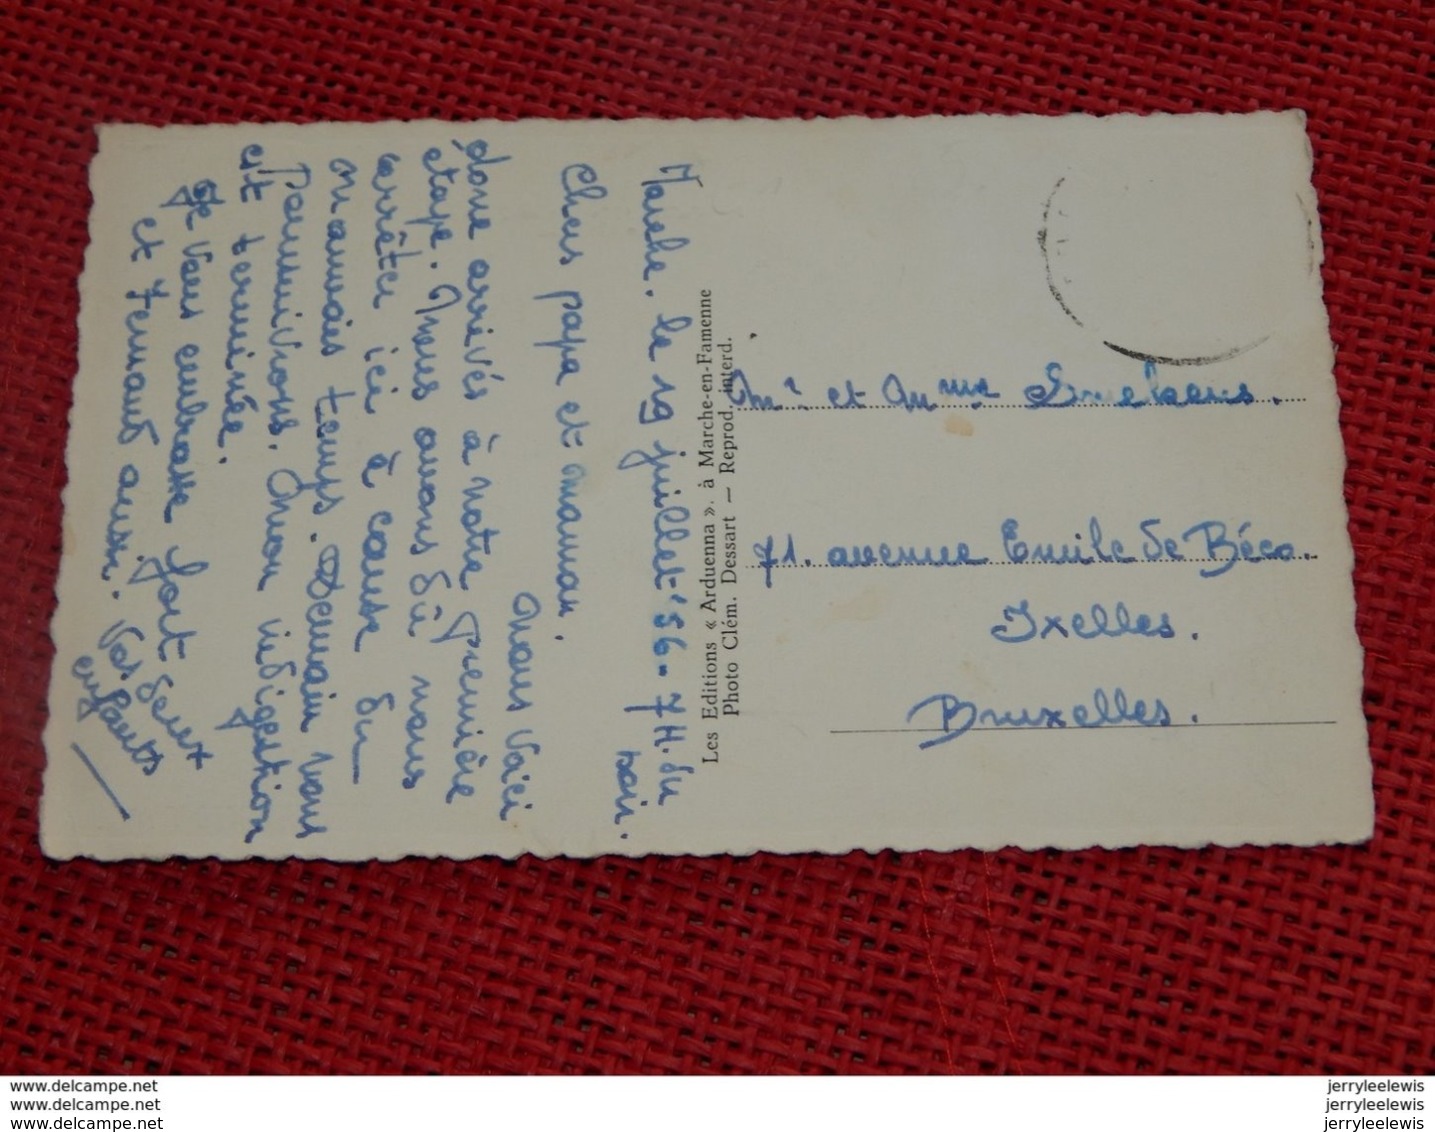 Marche. le 19 juillet '56. 7 H. du
soir.
Chers papa et maman.
Nous voici
donc arrivés à notre première
étape. Nous avons dû nous
arrêter ici à cause du
mauvais temps. Demain nous
poursuivrons. Mon indigestion
est terminée.
Je vous embrasse fort
et Fernand aussi. Vos deux
enfants
Les Editions « Arduenna ». à Marche-en-Famenne
Photo Clém. Dessart — Reprod. interd.
Mr et Mme
71. avenue Emile de Béco.
Ixelles.
Bruxelles.
www.delcampe.net
www.delcampe.net
www.delcampe.net
jerryleelewis
jerryleelewis
jerryleelewis